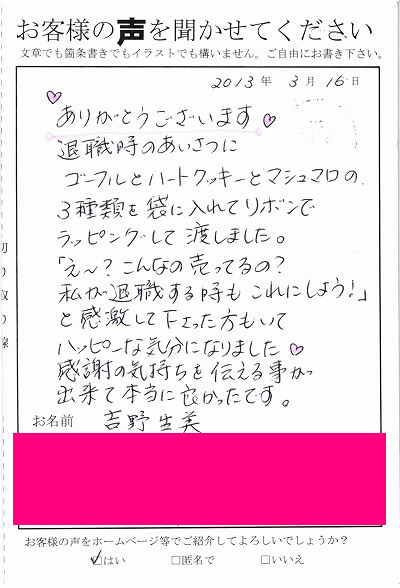 お客様の声を聞かせてください
文章でも箇条書きでもイラストでも構いません。ご自由にお書き下さい。
2013年 3月 16日
ありがとうございます
退職時のあいさつに
ゴーフルとハートクッキーとマシュマロの、
3種類を袋に入れてリボンで
ラッピングして渡しました。
「え〜?こんなの売ってるの?
私が退職する時もこれにしよう!」
と感激して下さった方もいて
ハッピーな気分になりました
感謝の気持ちを伝える事が
出来て本当に良かったです。
お名前 吉野生美
お客様の声をホームページ等でご紹介してよろしいでしょうか?
☑はい □匿名で □いいえ
切り取り線